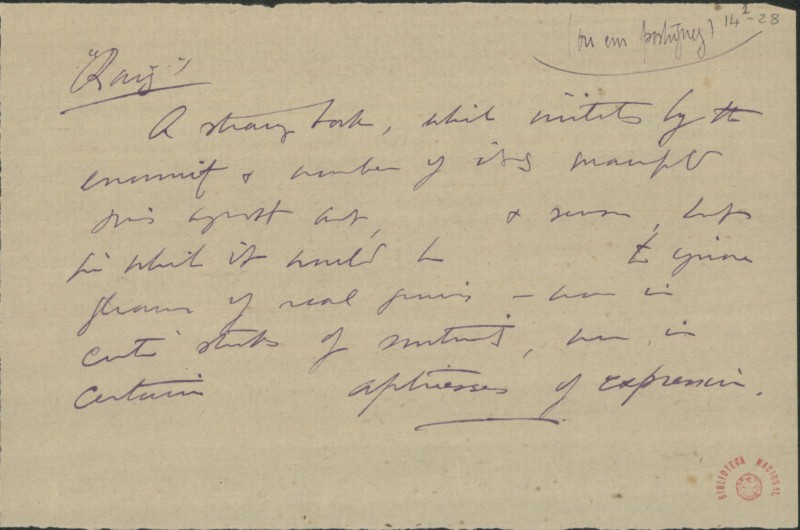 (ou em portuguez)
14¹-28
"Raiz"
A strange book, which irritates by the
enormity & number of its
sins against art, & reason, but
in which it would be to ignore
gleams of real genius — now in
certain of, now in
certain aptnesses of expression.
BIBLIOTECA NACIONAL